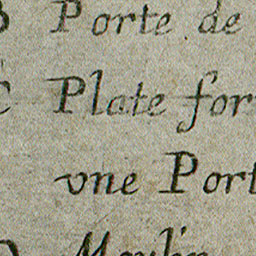 B Porte de
C Plate for
vne Port
D Moulin